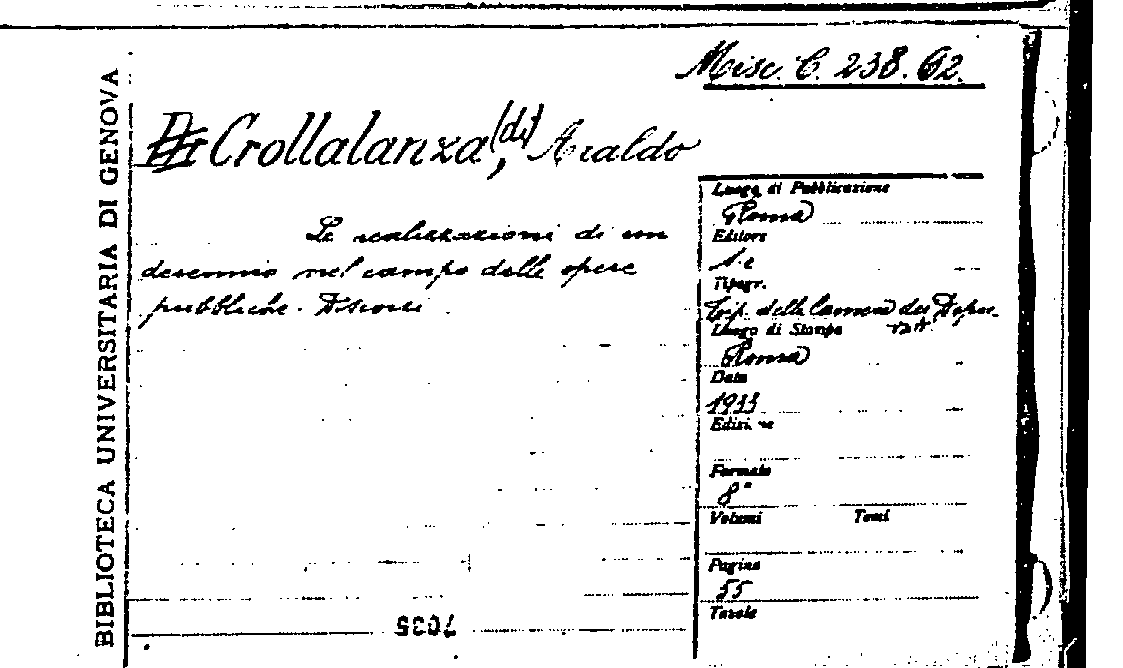 Misc. C. 238. 62.
BIBLIOTECA UNIVERSITARIA DI GENOVA
Crollalanza (di), Araldo
Luogo di Pubblicazione
Roma
Le realizzazioni di un
Editore
decennio nel campo delle opere
s.e
Tipogr.
pubbliche. Discorsi
Tip. della Camera dei Depu-
tati
Luogo di Stampa
Roma
Data
1933
Edizione
Formato
8°
Volumi Tomi
Pagine
55
Tavole
7035